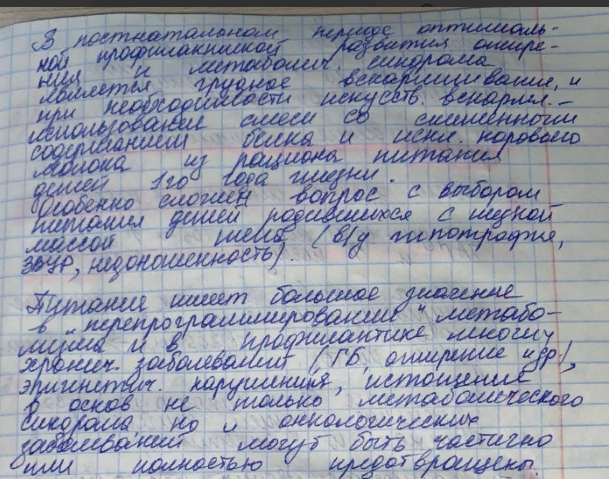 В постнатальном периоде оптималь-
ной профилактикой развития ожире-
ния и метаболич. синдрома
является грудное вскармливание, и
при необходимости искусств. вскармл. –
использование смеси со сниженным
содержанием белка и искл. коровьего
молока из рациона питания
детей 1го года жизни.
Особенно сложен вопрос с выбором
питания детей родившихся с низкой
массой тела (в/у гипотрофие,
ЗВУР, недоношенность).
Питание имеет большое значение
в "перепрограммировании" метабо-
лизма и в профилактике многих
хронич. заболеваний (ГБ, ожирение и др.),
эпигенетич. нарушения,
В основ не только метаболического
синдрома но и онкологических
заболеваний могут быть частично
или полностью предотвращены.